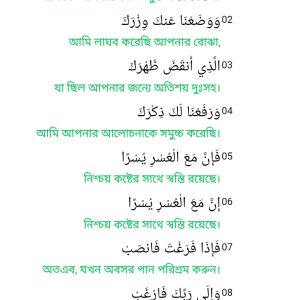 وَوَضَعْنَا عَنكَ وِزْرَكَ 02
আমি লাঘব করেছি আপনার বোঝা,
الَّذِي أَنقَضَ ظَهْرَكَ 03
যা ছিল আপনার জন্যে অতিশয় দুঃসহ।
وَرَفَعْنَا لَكَ ذِكْرَكَ 04
আমি আপনার আলোচনাকে সমুচ্চ করেছি।
فَإِنَّ مَعَ الْعُسْرِ يُسْرًا 05
নিশ্চয় কষ্টের সাথে স্বস্তি রয়েছে।
إِنَّ مَعَ الْعُسْرِ يُسْرًا 06
নিশ্চয় কষ্টের সাথে স্বস্তি রয়েছে।
فَإِذَا فَرَغْتَ فَانصَبْ 07
অতএব, যখন অবসর পান পরিশ্রম করুন।
وَإِلَى رَبِّكَ فَارْغَبْ 08